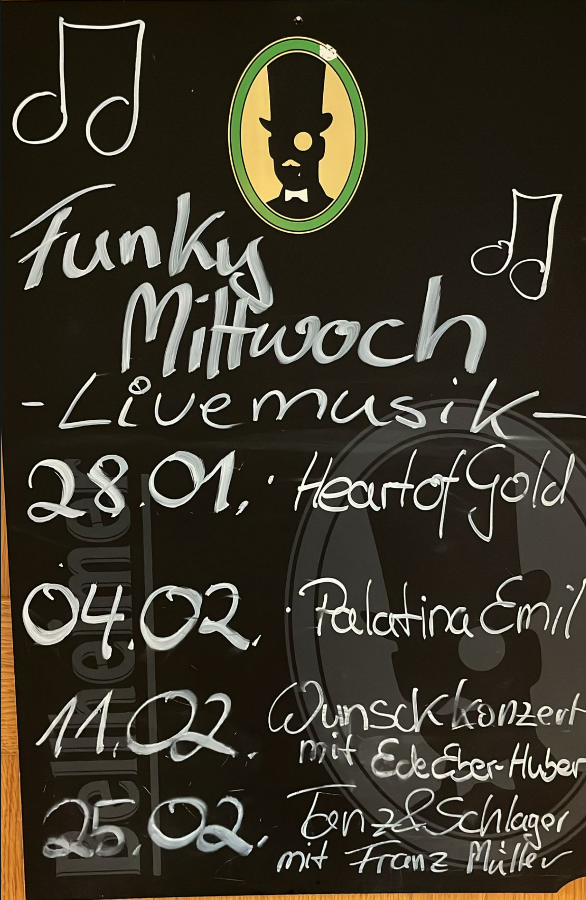 Funky
Mittwoch
-Livemusik-
28.01. Heart of Gold
04.02. Palatina Emil
11.02. Wunschkonzert
mit Ede Eber-Huber
25.02. Tanz & Schlager
mit Franz Müller
Bellheimer